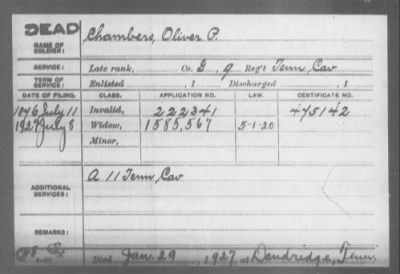 DEAD
NAME OF SOLDIER: Chambers, Oliver P.
SERVICE: Late rank, Co. G, 9 Reg't Tenn Cav
TERM OF SERVICE: Enlisted , 1 Discharged , 1
DATE OF FILING. CLASS. APPLICATION NO. LAW. CERTIFICATE NO.
1876 July 11 Invalid, 222341 475142
1927 July 8 Widow, 1585,567 5-1-20
Minor,
ADDITIONAL SERVICES: A 11 Tenn Cav
REMARKS:
Died Jan. 29, 1927, at Dandridge, Tenn.